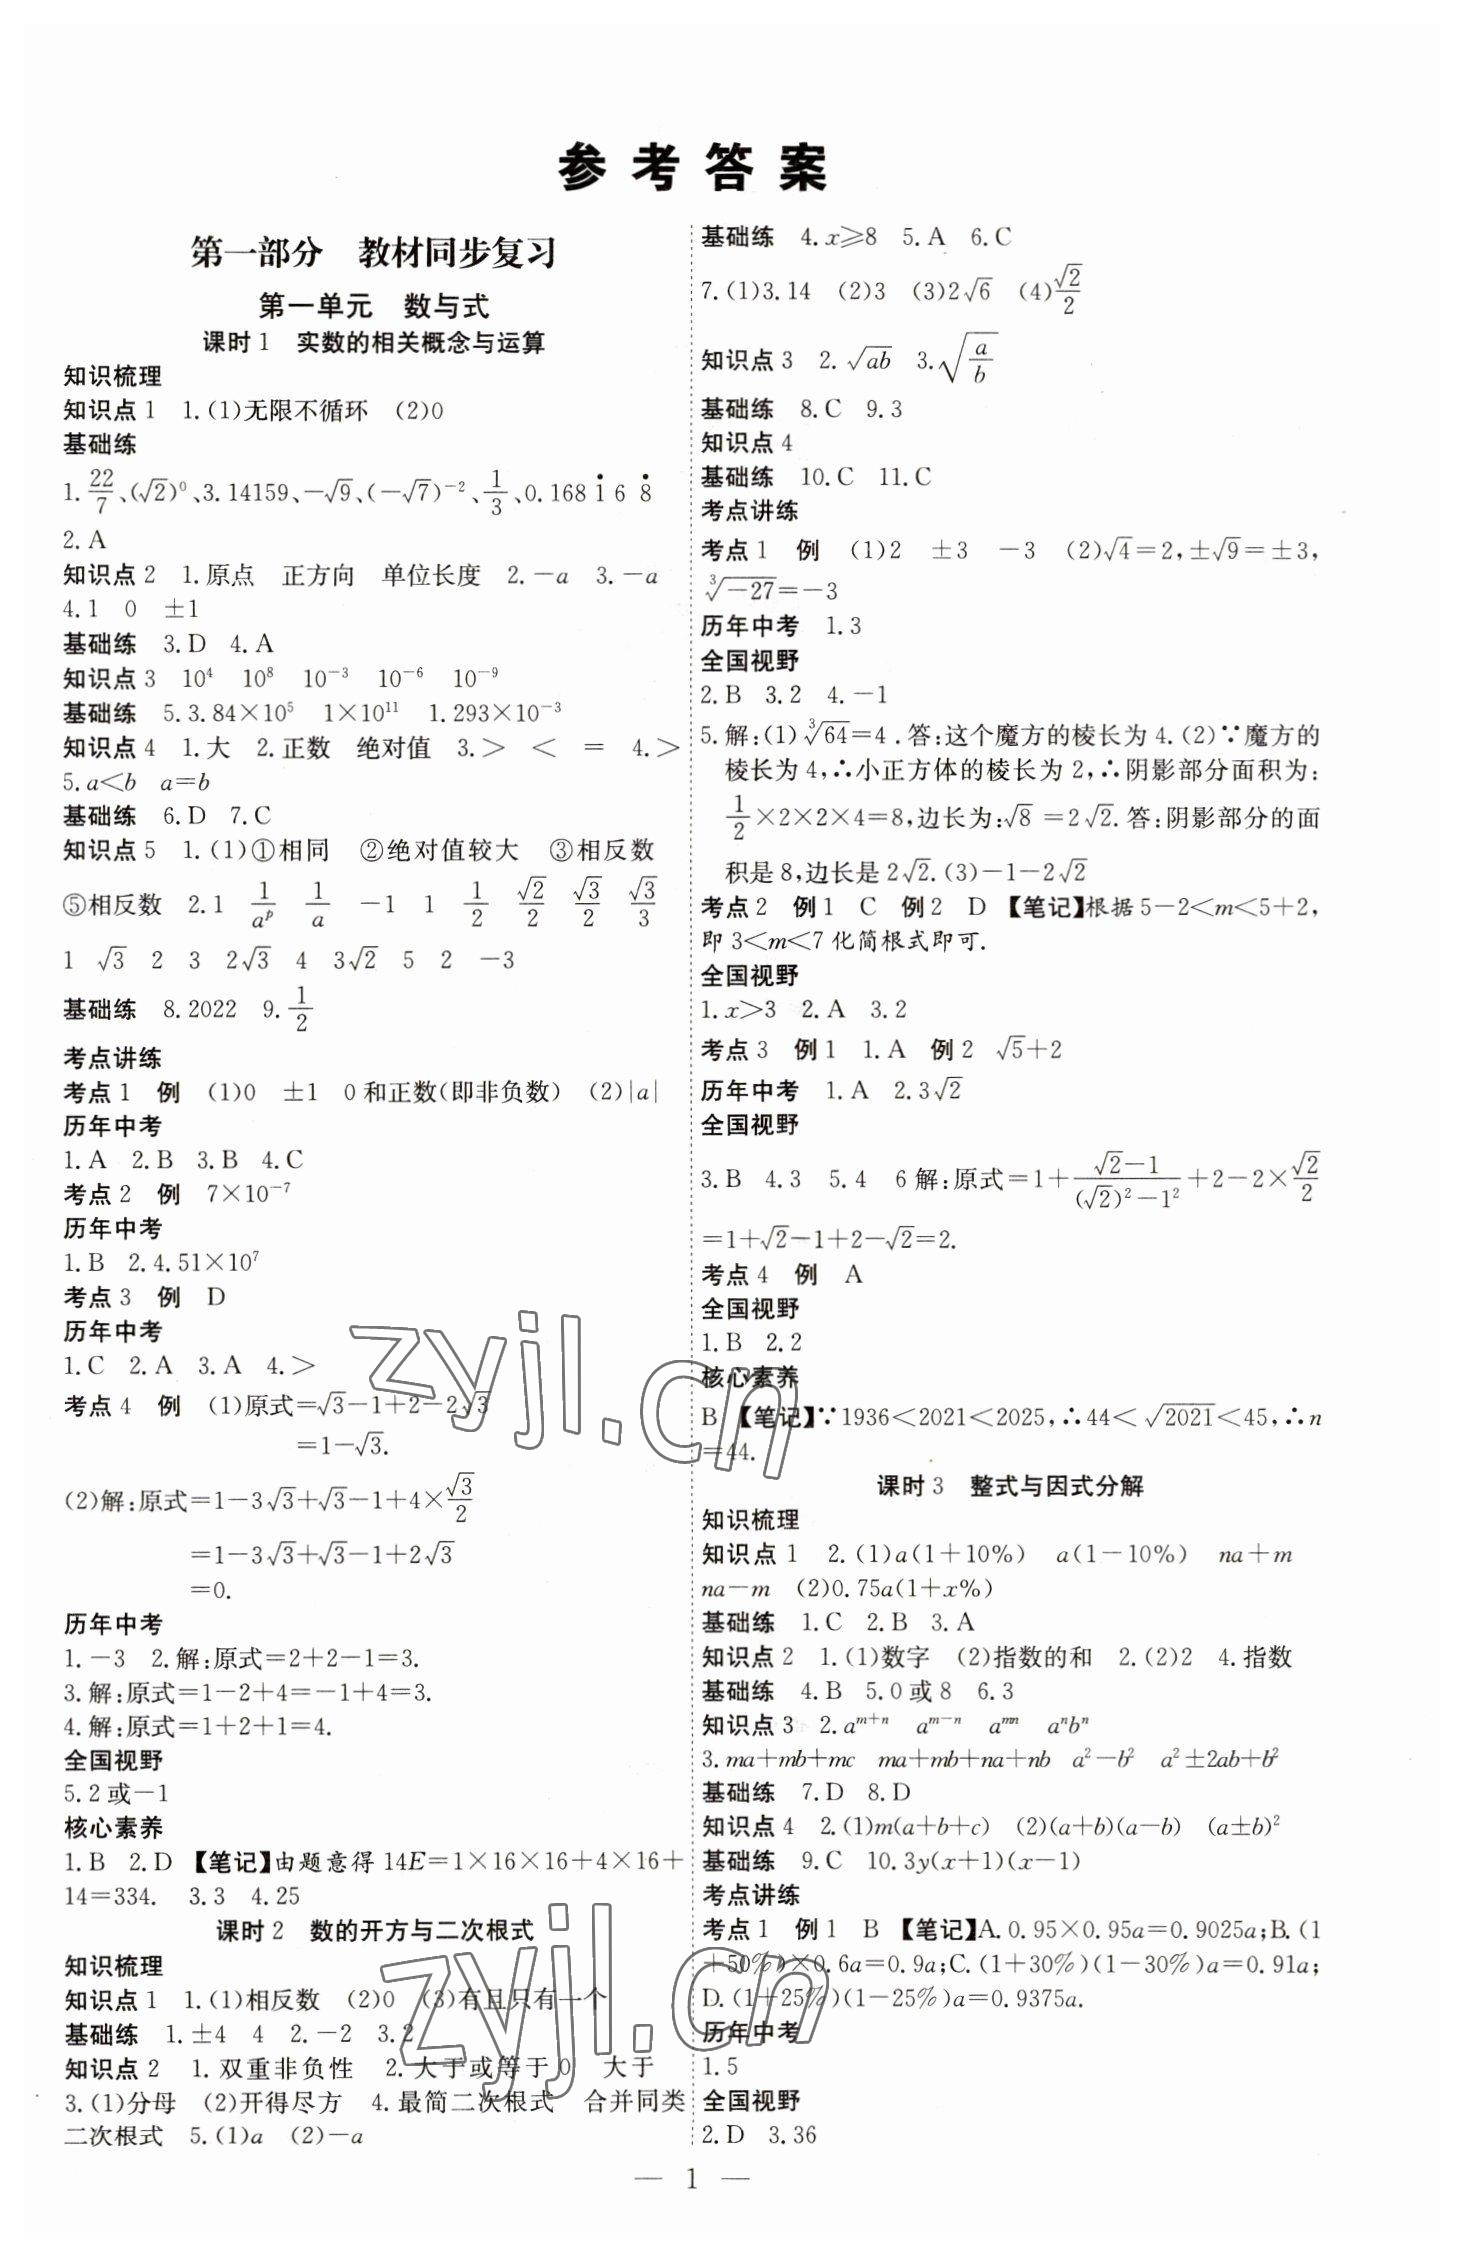 参考答案
第一部分　教材同步复习
第一单元　数与式
课时1　实数的相关概念与运算
知识梳理
知识点1　1.(1)无限不循环　(2)0
基础练
1.22/7、(√2)⁰、3.14159、−√9、(−√7)⁻²、1/3、0.168 1̇ 6 8̇
2.A
知识点2　1.原点　正方向　单位长度　2.−a　3.−a
4.1　0　±1
基础练　3.D　4.A
知识点3　10⁴　10⁸　10⁻³　10⁻⁶　10⁻⁹
基础练　5.3.84×10⁵　1×10¹¹　1.293×10⁻³
知识点4　1.大　2.正数　绝对值　3.＞　＜　＝　4.＞
5.a＜b　a=b
基础练　6.D　7.C
知识点5　1.(1)①相同　②绝对值较大　③相反数
⑤相反数　2.1　1/aᵖ　1/a　−1　1　1/2　√2/2　√3/2　√3/3
1　√3　2　3　2√3　4　3√2　5　2　−3
基础练　8.2022　9.1/2
考点讲练
考点1　例　(1)0　±1　0和正数(即非负数)　(2)|a|
历年中考
1.A　2.B　3.B　4.C
考点2　例　7×10⁻⁷
历年中考
1.B　2.4.51×10⁷
考点3　例　D
历年中考
1.C　2.A　3.A　4.＞
考点4　例　(1)原式=√3−1+2−2√3
=1−√3.
(2)解:原式=1−3√3+√3−1+4×√3/2
=1−3√3+√3−1+2√3
=0.
历年中考
1.−3　2.解:原式=2+2−1=3.
3.解:原式=1−2+4=−1+4=3.
4.解:原式=1+2+1=4.
全国视野
5.2或−1
核心素养
1.B　2.D　【笔记】由题意得14E=1×16×16+4×16+
14=334.　3.3　4.25
课时2　数的开方与二次根式
知识梳理
知识点1　1.(1)相反数　(2)0　(3)有且只有一个
基础练　1.±4　4　2.−2　3.2
知识点2　1.双重非负性　2.大于或等于0　大于
3.(1)分母　(2)开得尽方　4.最简二次根式　合并同类
二次根式　5.(1)a　(2)−a
基础练　4.x≥8　5.A　6.C
7.(1)3.14　(2)3　(3)2√6　(4)√2/2
知识点3　2.√ab　3.√(a/b)
基础练　8.C　9.3
知识点4
基础练　10.C　11.C
考点讲练
考点1　例　(1)2　±3　−3　(2)√4=2,±√9=±3,
∛−27=−3
历年中考　1.3
全国视野
2.B　3.2　4.−1
5.解:(1)∛64=4.答:这个魔方的棱长为4.(2)∵魔方的
棱长为4,∴小正方体的棱长为2,∴阴影部分面积为:
1/2×2×2×4=8,边长为:√8=2√2.答:阴影部分的面
积是8,边长是2√2.(3)−1−2√2
考点2　例1　C　例2　D　【笔记】根据5−2＜m＜5+2,
即3＜m＜7化简根式即可.
全国视野
1.x＞3　2.A　3.2
考点3　例1　1.A　例2　√5+2
历年中考　1.A　2.3√2
全国视野
3.B　4.3　5.4　6解:原式=1+(√2−1)/((√2)²−1²)+2−2×√2/2
=1+√2−1+2−√2=2.
考点4　例　A
全国视野
1.B　2.2
核心素养
B　【笔记】∵1936＜2021＜2025,∴44＜√2021＜45,∴n
=44.
课时3　整式与因式分解
知识梳理
知识点1　2.(1)a(1+10%)　a(1−10%)　na+m
na−m　(2)0.75a(1+x%)
基础练　1.C　2.B　3.A
知识点2　1.(1)数字　(2)指数的和　2.(2)2　4.指数
基础练　4.B　5.0或8　6.3
知识点3　2.aᵐ⁺ⁿ　aᵐ⁻ⁿ　aᵐⁿ　aⁿbⁿ
3.ma+mb+mc　ma+mb+na+nb　a²−b²　a²±2ab+b²
基础练　7.D　8.D
知识点4　2.(1)m(a+b+c)　(2)(a+b)(a−b)　(a±b)²
基础练　9.C　10.3y(x+1)(x−1)
考点讲练
考点1　例1　B　【笔记】A.0.95×0.95a=0.9025a;B.(1
+50%)×0.6a=0.9a;C.(1+30%)(1−30%)a=0.91a;
D.(1+25%)(1−25%)a=0.9375a.
历年中考
1.5
全国视野
2.D　3.36
— 1 —
zyjl.cn
zyjl.cn